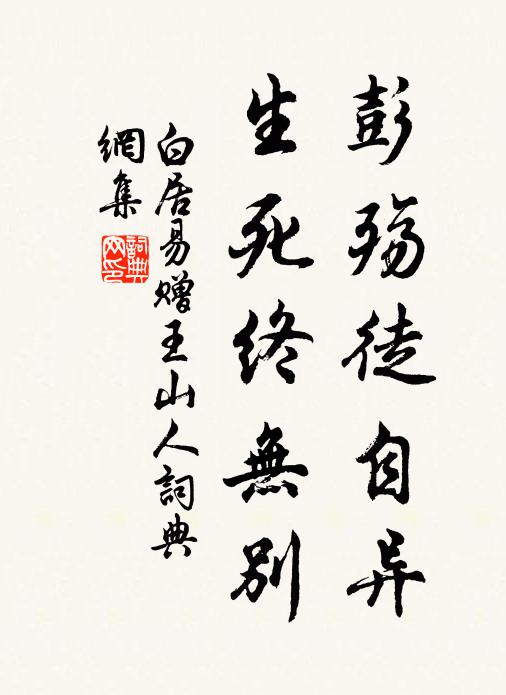 彭殤徒自异
生死終無別
白居易贈王山人詞典
網集
詞典网印